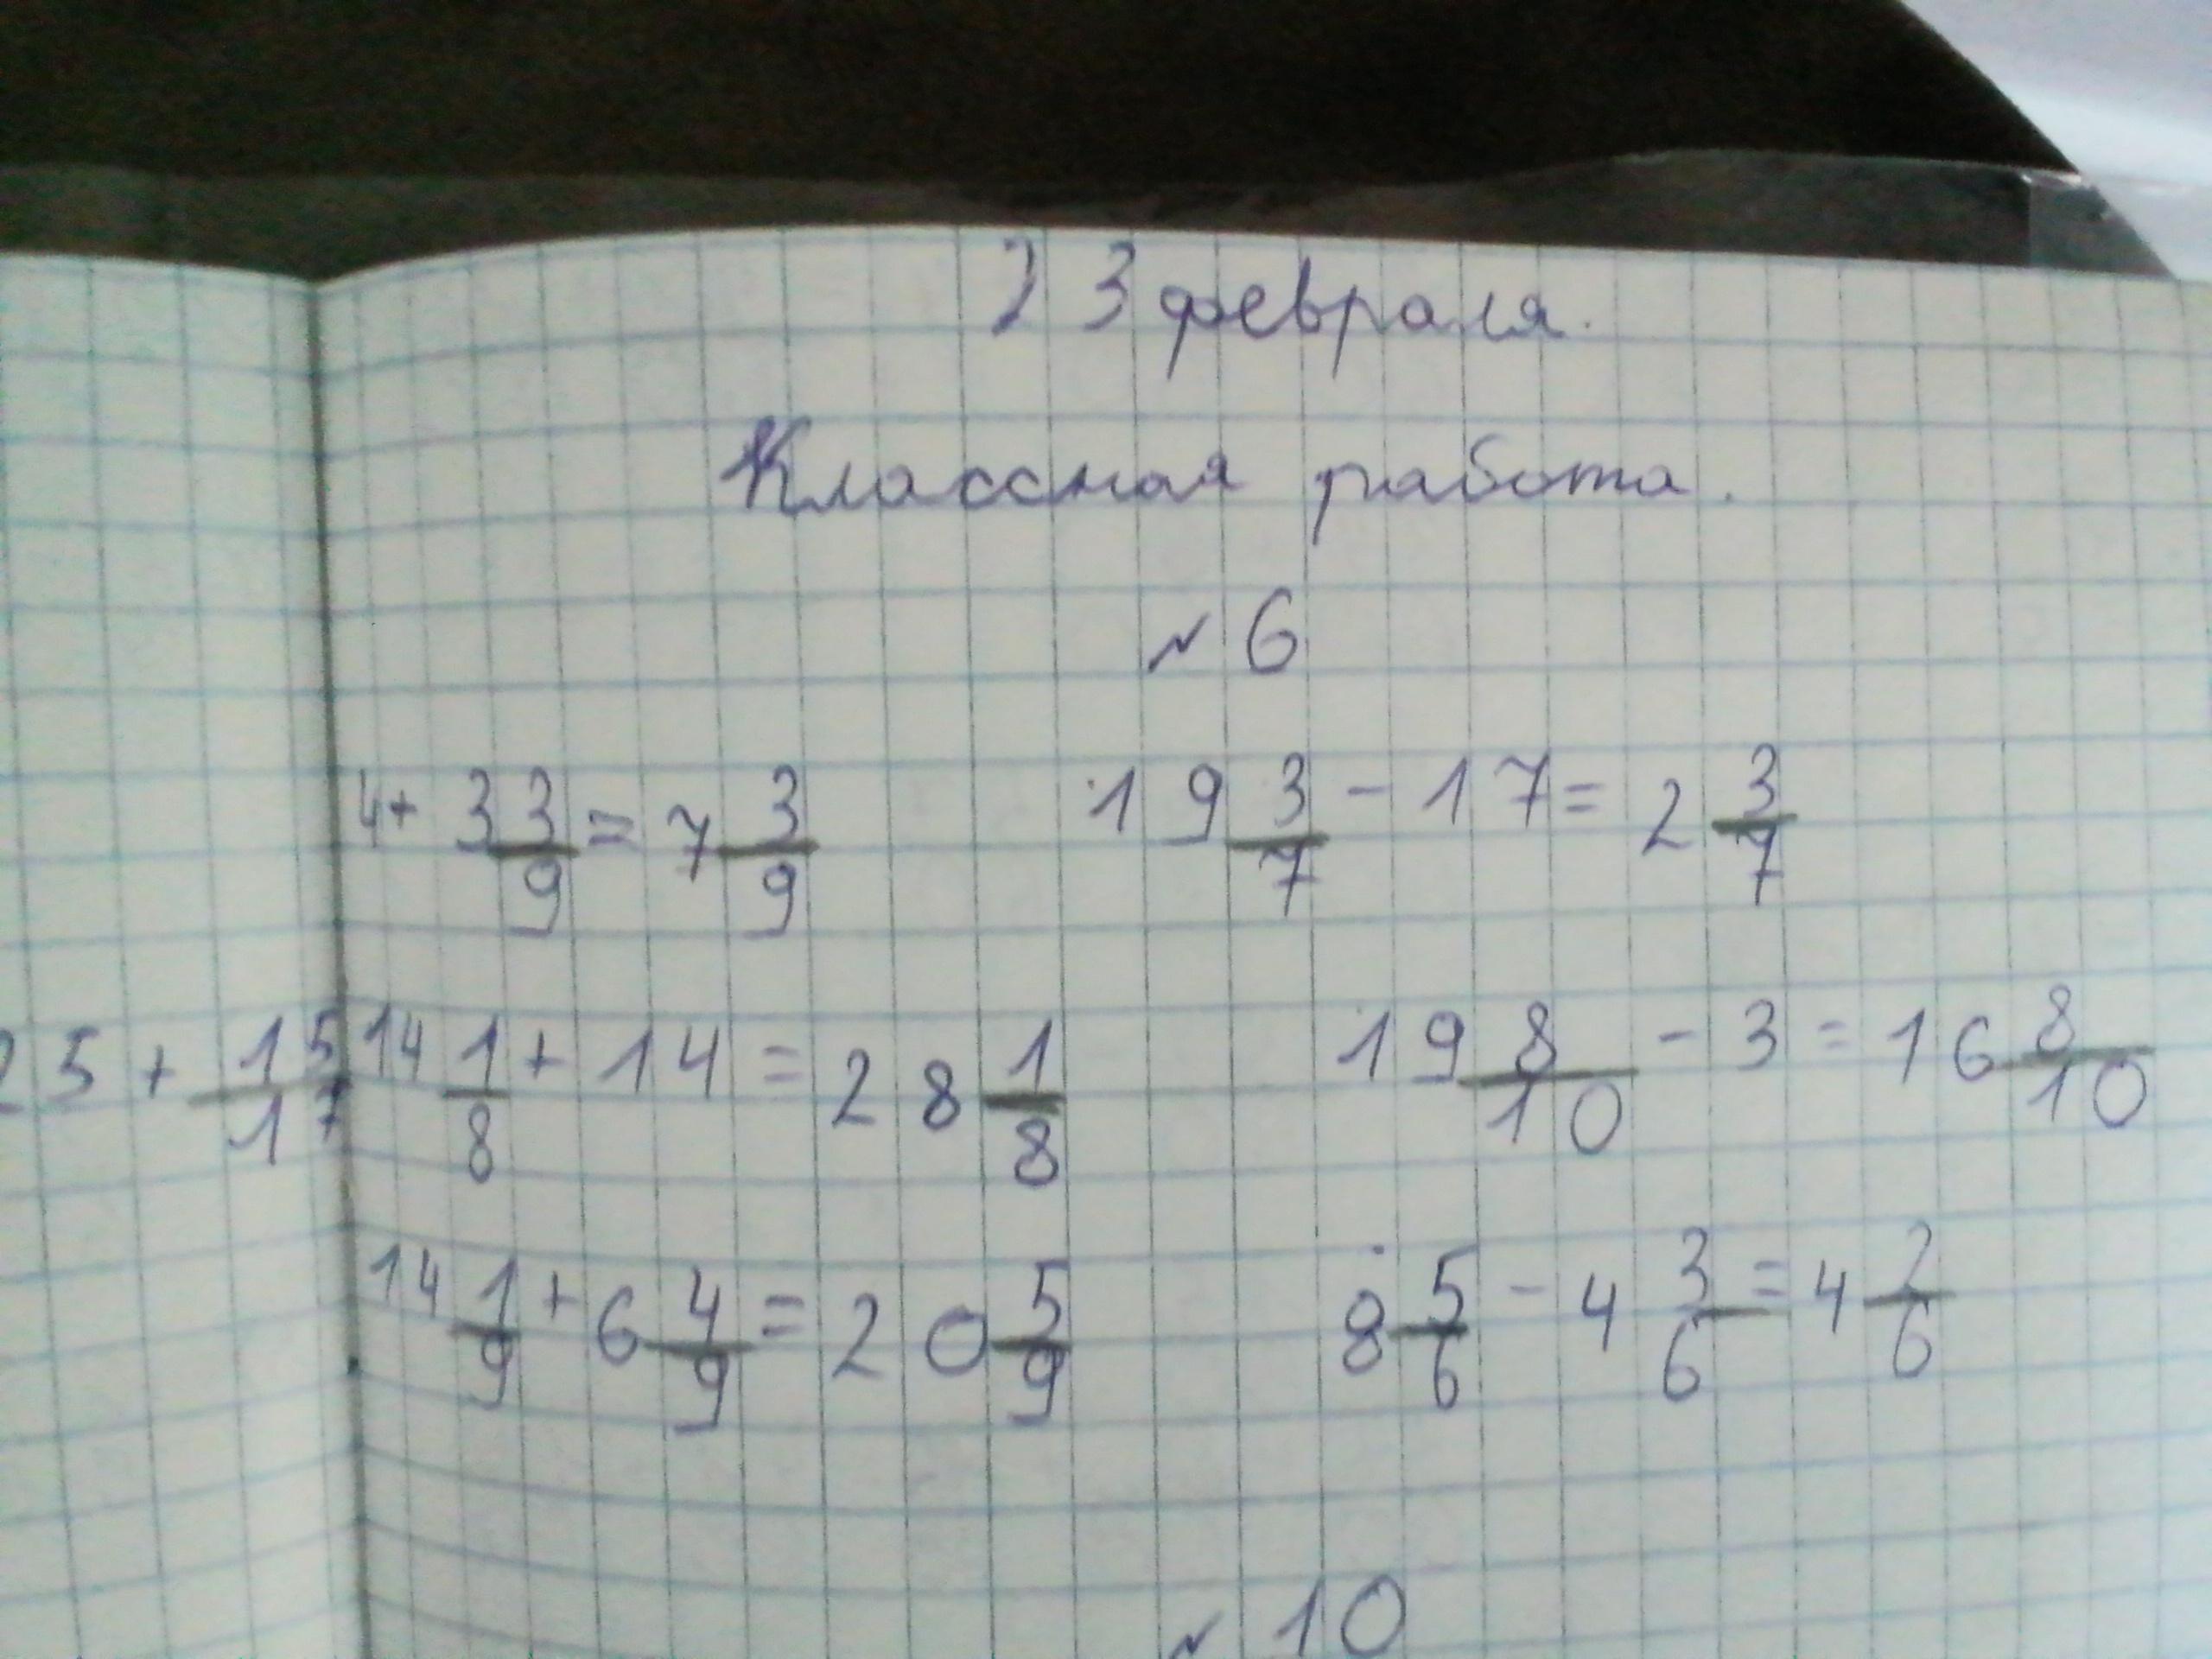 23 февраля.
Классная работа.
№ 6
4 + 3 3/9 = 7 3/9
19 3/7 - 17 = 2 3/7
25 + 15/17
14 1/8 + 14 = 28 1/8
19 8/10 - 3 = 16 8/10
14 1/9 + 6 4/9 = 20 5/9
8 5/6 - 4 3/6 = 4 2/6
№ 10